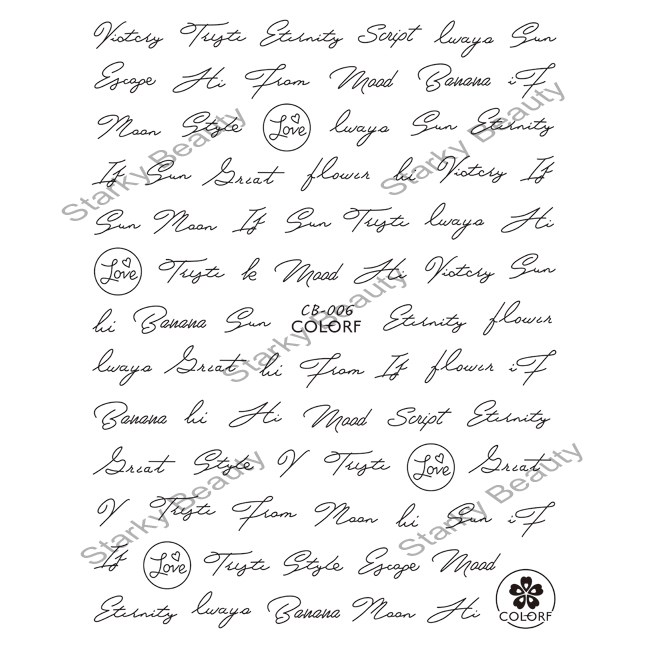 Victory Triste Eternity Script lwaya Sun
Escape Hi From Mood Banana iF
Moon Style Love lwaya Sun Eternity
If Sun Great flower hi Victory If
Sun Moon If Sun Triste lwaya Hi
Love Triste k Mood Hi Victory Sun
hi Banana Sun CB-006 COLORF Eternity flower
lwaya Great hi From If flower iF
Banana hi Hi Mood Script Eternity
Great Style V Triste Love Great
V Triste From Moon hi Sun iF
If Love Triste Style Escape Mood
Eternity lwaya Banana Moon Hi COLORF
Starky Beauty
Starky Beauty
Starky Beauty
Starky Beauty
Starky Beauty